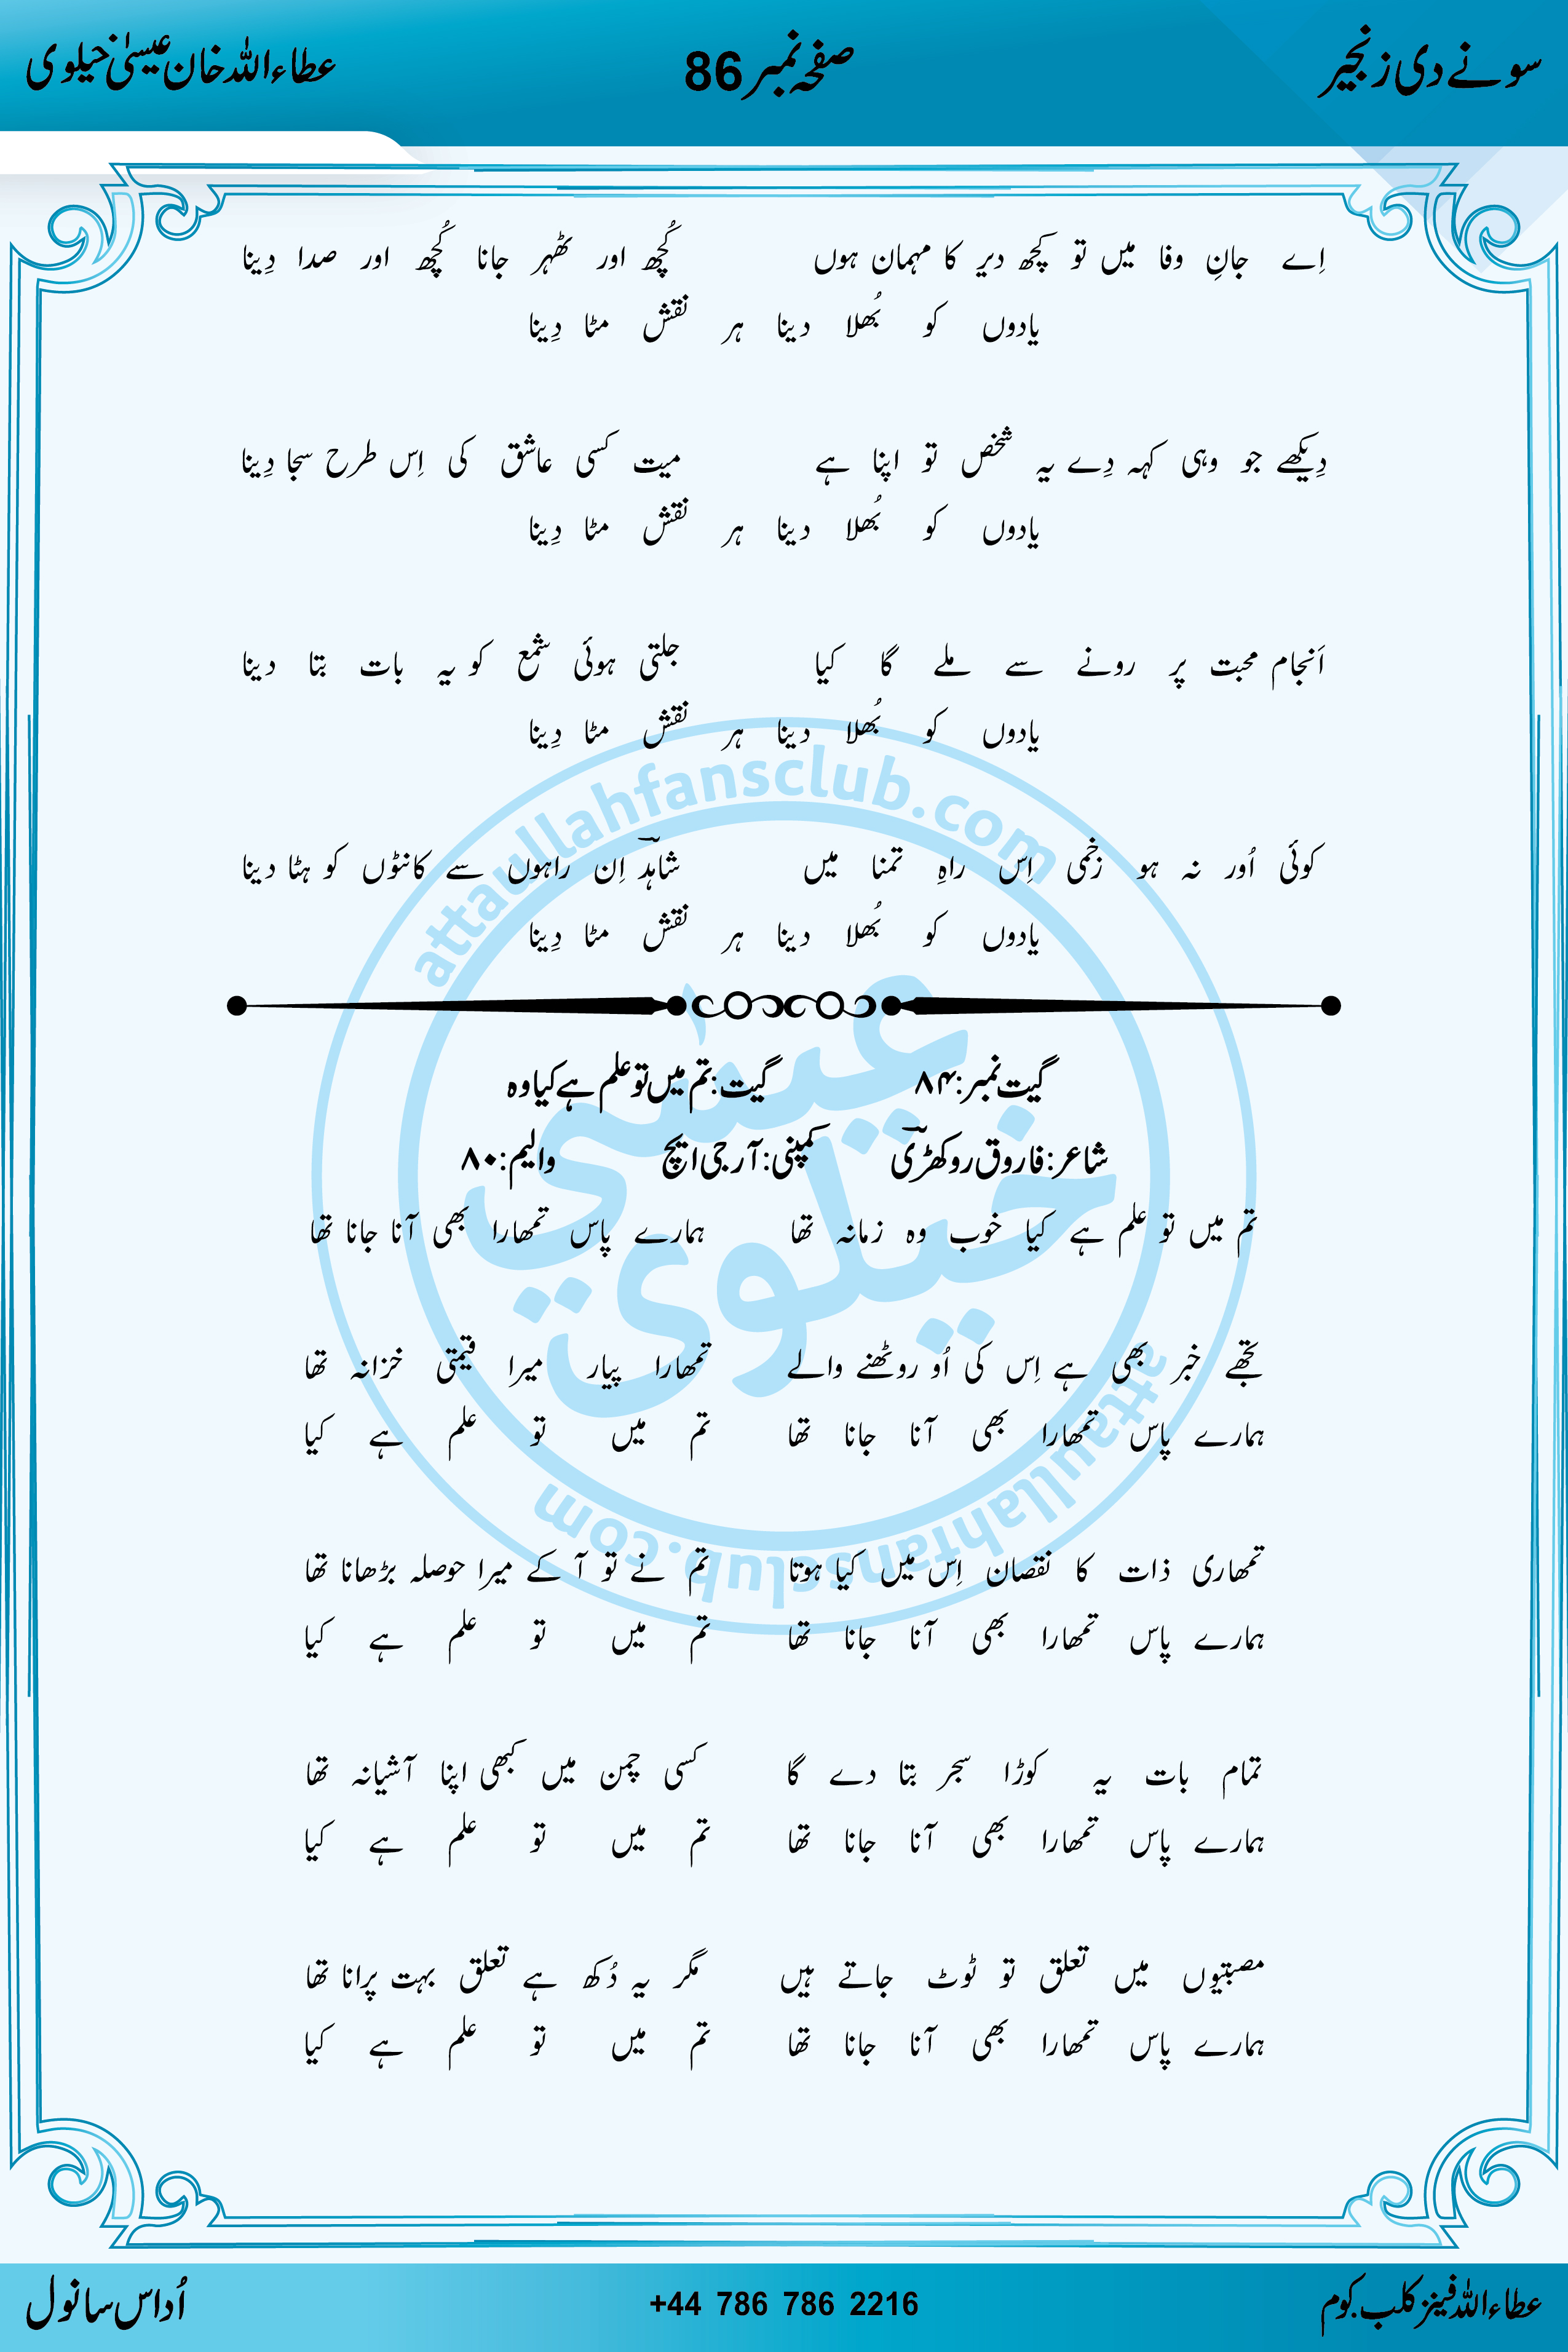 سونے دی زنجیر صفحہ نمبر 86 عطاءاللہ خان عیسیٰ خیلوی
اِے جانِ وفا میں تو کچھ دیر کا مہمان ہوں کُچھ اور ٹھہر جانا کُچھ اور صدا دِینا
یادوں کو بُھلا دینا ہر نقش مٹا دِینا
دِیکھے جو وہی کہہ دِے یہ شخص تو اپنا ہے میت کسی عاشق کی اِس طرح سجا دِینا
یادوں کو بُھلا دینا ہر نقش مٹا دِینا
اَنجام محبت پر رونے سے ملے گا کیا جلتی ہوئی شمع کو یہ بات بتا دینا
یادوں کو بُھلا دینا ہر نقش مٹا دِینا
کوئی اُور نہ ہو زخمی اِس راہِ تمنا میں شاہدؔ اِن راہوں سے کانٹوں کو ہٹا دینا
یادوں کو بُھلا دینا ہر نقش مٹا دِینا
گیت نمبر:۸۴ گیت:تم میں تو علم ہے کیا وہ
شاعر:فاروق روکھڑیؔ کمپنی:آر جی ایچ والیم:۸۰
تم میں تو علم ہے کیا خوب وہ زمانہ تھا ہمارے پاس تمھارا بھی آنا جانا تھا
تجھے خبر بھی ہے اِس کی اُو روٹھنے والے تمھارا پیار میرا قیمتی خزانہ تھا
ہمارے پاس تمھارا بھی آنا جانا تھا تم میں تو علم ہے کیا
تمھاری ذات کا نقصان اِس میں کیا ہوتا تم نے تو آ کے میرا حوصلہ بڑھانا تھا
ہمارے پاس تمھارا بھی آنا جانا تھا تم میں تو علم ہے کیا
تمام بات یہ کوڑا سجر بتا دے گا کسی چمن میں کبھی اپنا آشیانہ تھا
ہمارے پاس تمھارا بھی آنا جانا تھا تم میں تو علم ہے کیا
مصبتیوں میں تعلق تو ٹوٹ جاتے ہیں مگر یہ دُکھ ہے تعلق بہت پرانا تھا
ہمارے پاس تمھارا بھی آنا جانا تھا تم میں تو علم ہے کیا
attaullahfansclub.com
عیسیٰ
خیلوی
attaullahfansclub.com
عطاءاللہ فینز کلب.کوم +44 786 786 2216 اُداس سانول